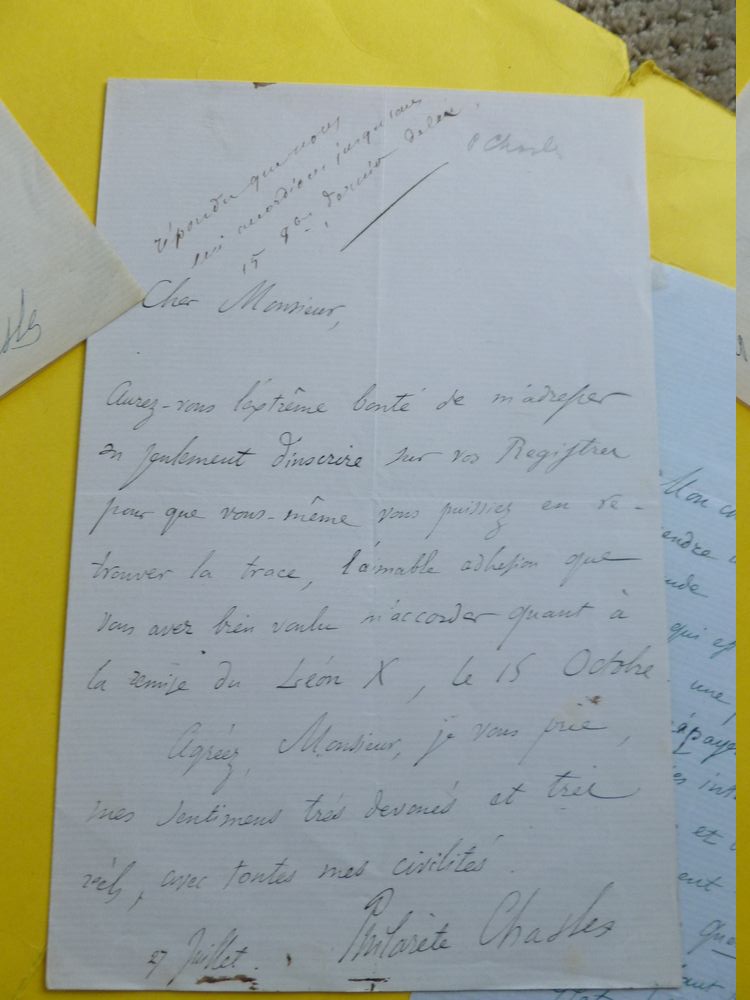 répondu que nous
lui accordions jusqu'au
15 8bre dernier délai.
P Chasles
Cher Monsieur,
Aurez-vous l'extrême bonté de m'adresser
ou seulement d'inscrire sur vos Registres
pour que vous-même vous puissiez en re-
trouver la trace, l'aimable adhesion que
vous avez bien voulu m'accorder quant à
la remise du Léon X, le 15 Octobre.
Agréez, Monsieur, je vous prie,
mes sentimens très devoués et très
réels, avec toutes mes civilités.
Philarète Chasles
27 Juillet.
Mon
endre
qui
une
à payer
et
ent